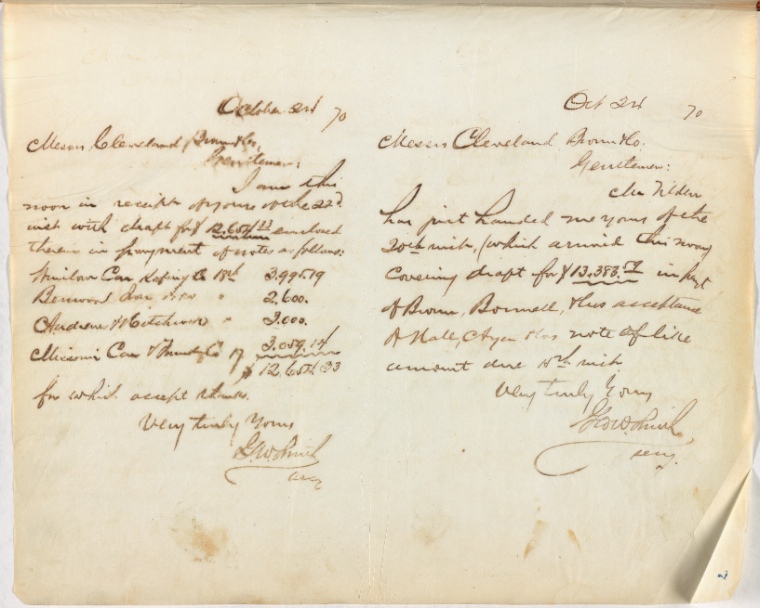 October 24 70
Messrs Cleveland, Brown & Co,
Gentlemen:
I am this
noon in receipt of yours of the 22d
inst with draft for $ 12,654 33 enclosed
therein in payment of notes as follows:
Car Co 18th 3.995 19
Benwood Iron " 2.600.
Andrews & Hitchcock " 3.000.
Missouri Car & Co 3.059.14
$ 12.654 33
for which accept thanks.
Very truly Yours
G.W.
Oct 24 70
Messrs Cleveland Brown & Co.
Gentlemen:
Mr Tilden
has just handed me yours of the
20th inst, (which arrived this
covering draft for $ 13,383. in
of Brown, Bonnell, & Co's acceptance
& Hall, & Co's note of like
amount due inst
Very truly Yours
Geo W.